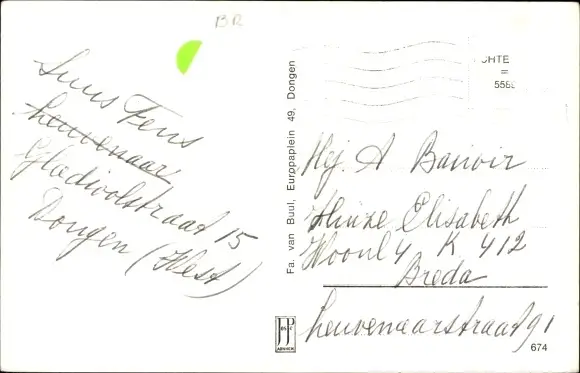 BR
Suus Fens
Leuvenaar
Gladioolstraat 15
Dongen (West)
Fa. van Buul, Europaplein 49, Dongen
CHTE
=
Mej. A Bauvoir
Huize Elisabeth
Woonly K 412
Breda
Leuvenaarstraat 91
JP
674